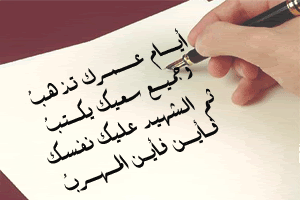 أيام عمرك تذهبُ
وجميع سعيك يكتبُ
ثم الشهيد عليك نفسك
فأين فأين المهربُ